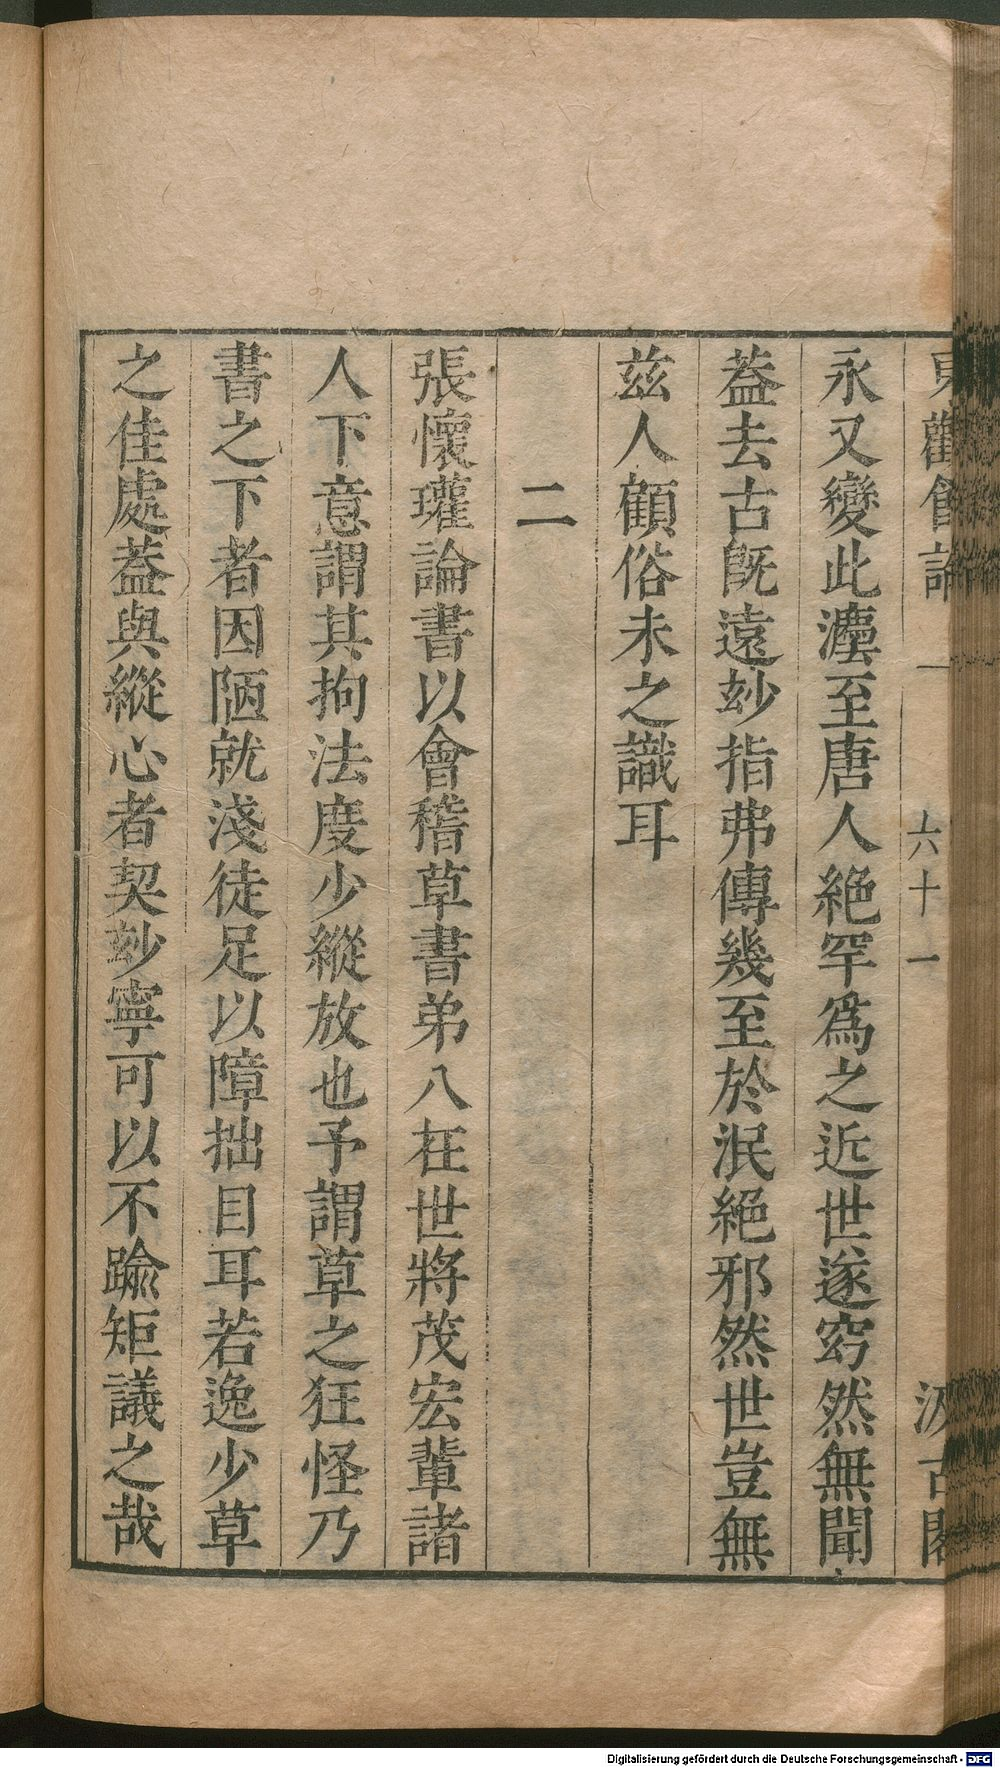 東觀餘論 一 六十一 汲古閣
永又變此灋至唐人絶罕爲之近世遂窈然無聞
葢去古旣遠玅指弗傳幾至於泯絶邪然世豈無
兹人顧俗未之識耳
二
張懷瓘論書以會稽草書弟八在世將茂宏輩諸
人下意謂其拘法度少縱放也予謂草之狂怪乃
書之下者因陋就淺徒足以障拙目耳若逸少草
之佳處葢與縱心者契玅寧可以不踰矩議之哉
Digitalisierung gefördert durch die Deutsche Forschungsgemeinschaft - DFG